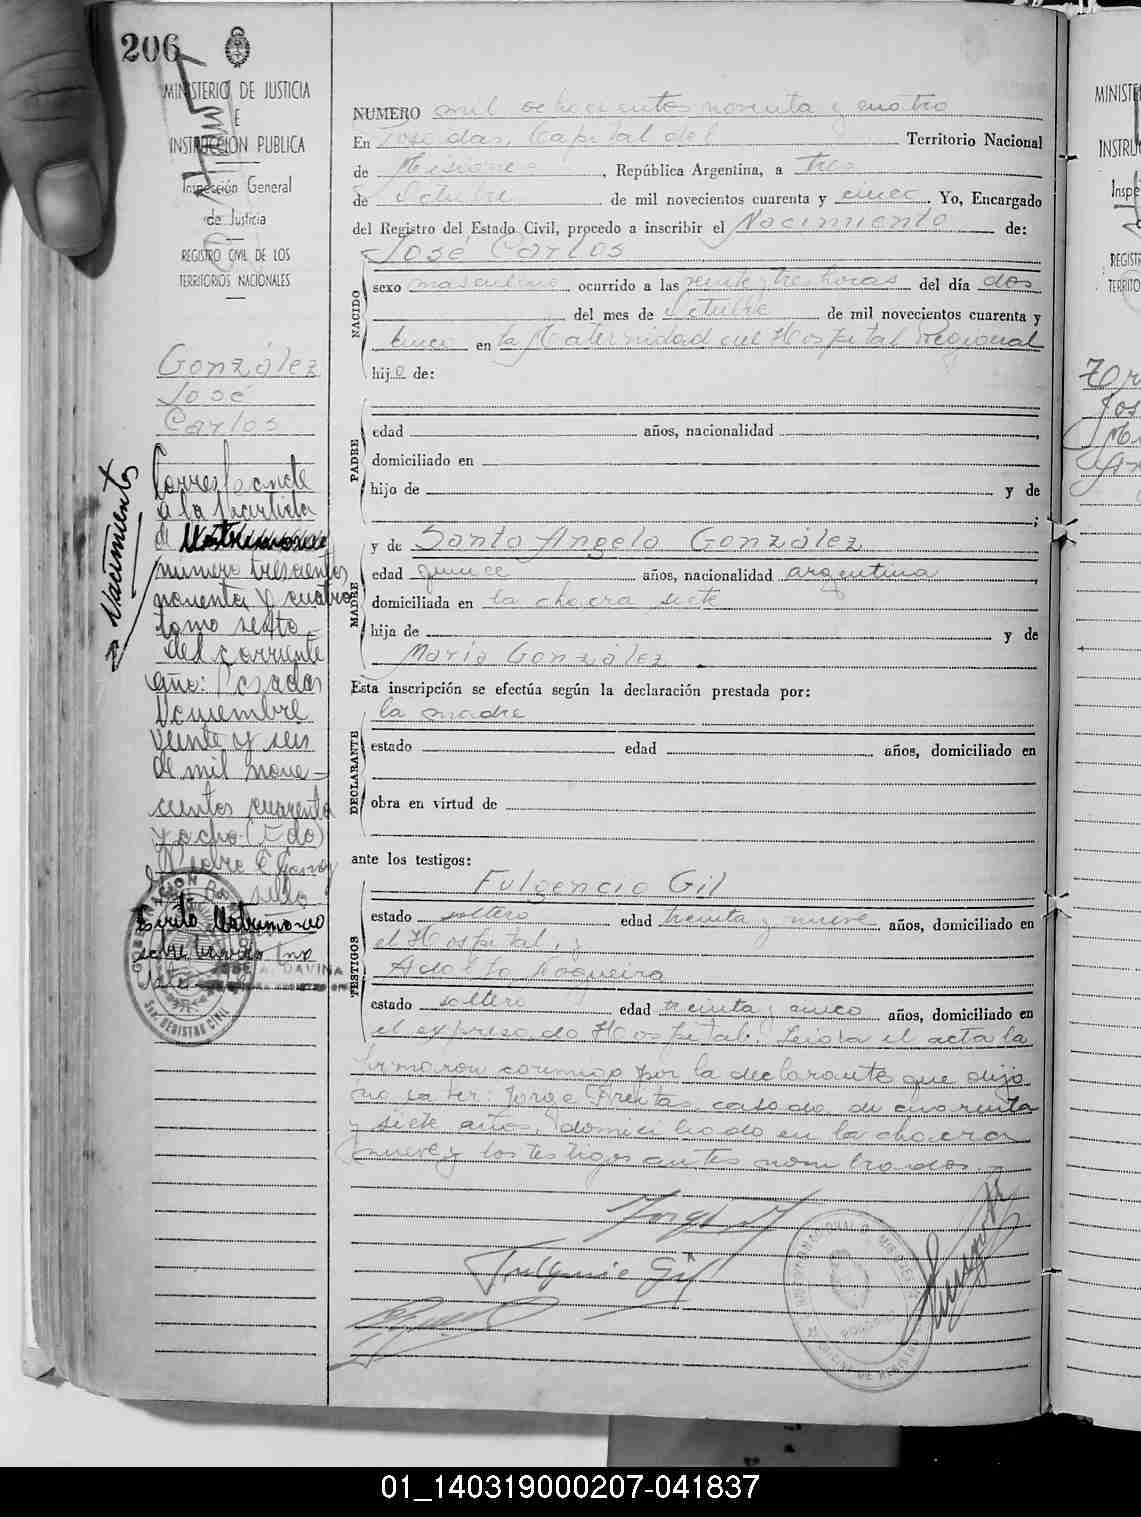 206
MINISTERIO DE JUSTICIA
E
INSTRUCCION PUBLICA
Inspección General
de Justicia
REGISTRO CIVIL DE LOS
TERRITORIOS NACIONALES
González
José
Carlos
a la partida
de
→ Nacimientos
numero trescientos
noventa y cuatro
tomo sexto
del corriente
año: Posadas
Noviembre
veinte y seis
de mil nove-
cientos cuarenta
y ocho (Fdo)
Pedro E
sello
NUMERO mil ochocientos noventa y cuatro
En Posadas, Capital del Territorio Nacional
de Misiones, República Argentina, a tres
de Octubre de mil novecientos cuarenta y cinco. Yo, Encargado
del Registro del Estado Civil, procedo a inscribir el Nacimiento de:
José Carlos
NACIDO
sexo masculino ocurrido a las veintitres horas del día dos
del mes de Octubre de mil novecientos cuarenta y
cinco en la Maternidad del Hospital Regional
hijo de:
PADRE
edad años, nacionalidad ,
domiciliado en
hijo de y de
;
MADRE
y de Santa Angela González
edad quince años, nacionalidad argentina,
domiciliada en la chacra siete
hija de y de
María González.
Esta inscripción se efectúa según la declaración prestada por:
DECLARANTE
la madre
estado edad años, domiciliado en
obra en virtud de
ante los testigos:
TESTIGOS
Fulgencio Gil
estado soltero edad treinta y nueve años, domiciliado en
el Hospital, y
Adolfo Nogueira
estado soltero edad treinta y cinco años, domiciliado en
el expresado Hospital. Leída el acta la
firmaron conmigo por la declarante que dijo
no saber: Jorge Freitas, casado, de cuarenta
y siete años, domiciliado en la chacra
nueve y los testigos antes nombrados.
Fulgencio Gil
MINIST
INSTRU
Inspe
REGIST
TERRITO
Jos
01_140319000207-041837